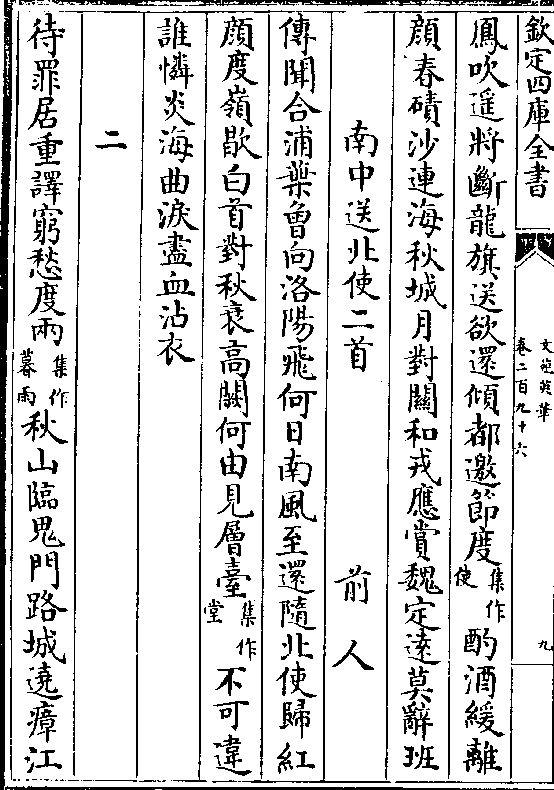 欽定四庫全書
文苑英華
卷二百九十六
九
鳳吹遥將斷龍旗送欲還傾都邀節度集作使酌酒緩離
顔春磧沙連海秋城月對關和戎應賞魏定遠莫辭班
南中送北使二首 前人
傳聞合浦葉曾向洛陽飛何日南風至還隨北使歸紅
顔度嶺歇白首對秋衰高闕何由見層臺集作堂不可違
誰憐炎海曲淚盡血沾衣
二
待罪居重譯窮愁度雨集作暮雨秋山臨鬼門路城遶瘴江